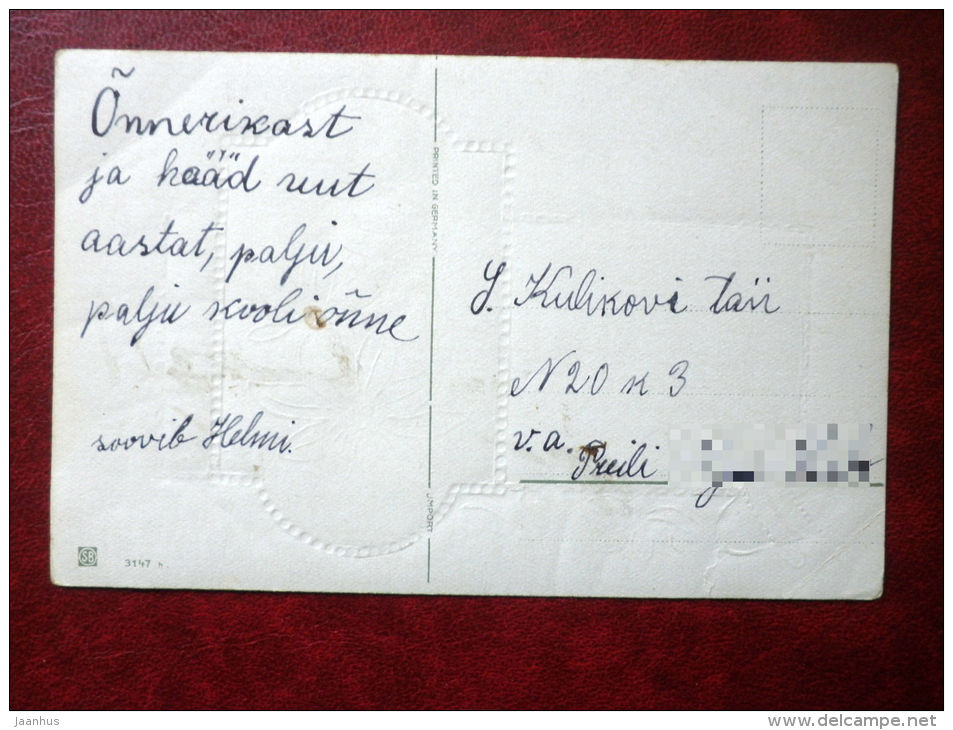 Õnnerikast
ja hääd uut
aastat, palju,
palju kooli õnne
soovib Helmi.
PRINTED IN GERMANY
IMPORT
S. Kulikovi tän
N 20 K 3
v.a. Preili
SB
3147
Jaanhus
www.delcampe.net